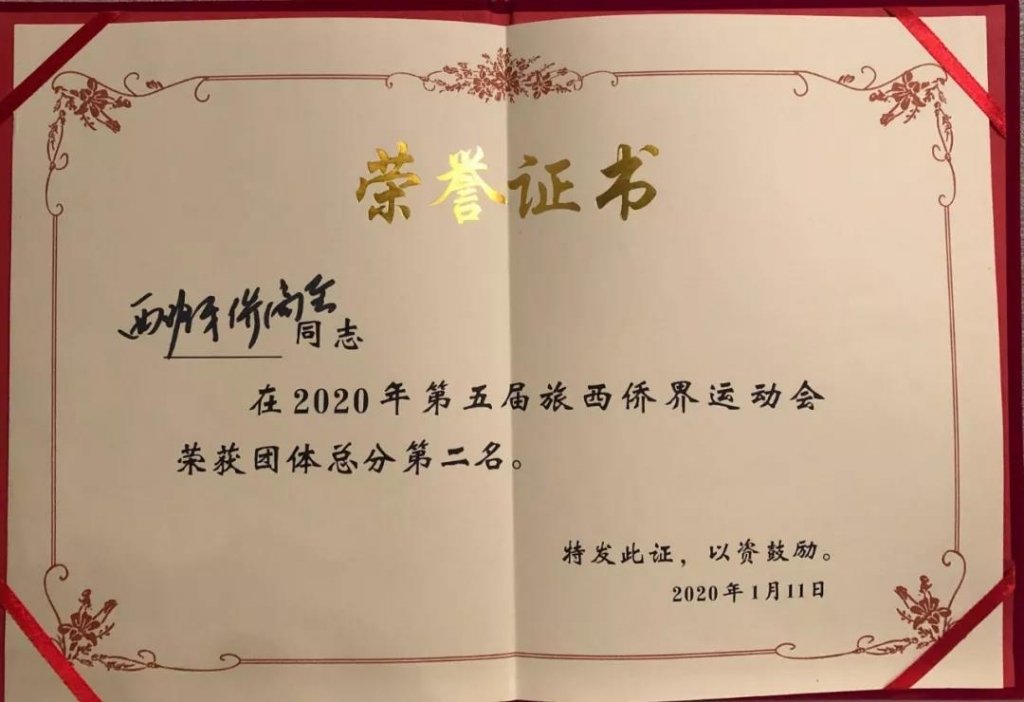 荣誉证书
西班牙侨商会同志
在2020年第五届旅西侨界运动会
荣获团体总分第二名。
特发此证，以资鼓励。
2020年1月11日